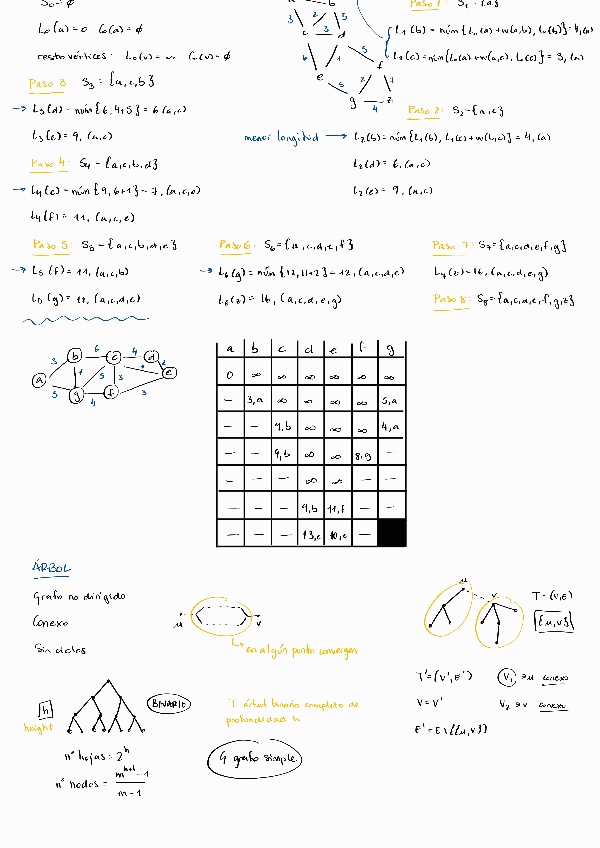 S₀ = ∅
L₀(a) = 0 C₀(a) = ∅
resto vértices: L₀(v) = ∞ C₀(v) = ∅
Paso 1: S₁ = {a}
L₁(b) = mín{L₀(a) + w(a,b), L₀(b)} = 4, (a)
L₁(c) = mín{L₀(a) + w(a,c), L₀(c)} = 3, (a)
Paso 2: S₂ = {a,c}
menor longitud → L₂(b) = mín{L₁(b), L₁(c) + w(b,c)} = 4, (a)
L₂(d) = 6, (a,c)
L₂(e) = 9, (a,c)
Paso 3: S₃ = {a,c,b}
→ L₃(d) = mín{6, 4+5} = 6 (a,c)
L₃(e) = 9, (a,c)
Paso 4: S₄ = {a,c,b,d}
→ L₄(e) = mín{9, 6+1} = 7, (a,c,d)
L₄(f) = 11, (a,c,e)
Paso 5: S₅ = {a,c,b,d,e}
→ L₅(f) = 11, (a,c,b)
L₅(g) = 12, (a,c,d,e)
Paso 6: S₆ = {a,c,d,e,f}
→ L₆(g) = mín{12, 11+2} = 12, (a,c,d,e)
L₆(z) = 16, (a,c,d,e,g)
Paso 7: S₇ = {a,c,d,e,f,g}
L₇(z) = 16, (a,c,d,e,g)
Paso 8: S₈ = {a,c,d,e,f,g,z}
a b c d e f g
0 ∞ ∞ ∞ ∞ ∞ ∞
– 3,a ∞ ∞ ∞ ∞ 5,a
– – 9,b ∞ ∞ ∞ 4,a
– – 9,b ∞ ∞ 8,g –
– – – ∞ ∞ – –
– – – 9,b 11,f – –
– – – 13,c 10,c –
ÁRBOL
Grafo no dirigido
Conexo
Sin ciclos
u v
↳ en algún punto convergen
u v
T = (V,E)
{u,v}
T' = (V',E')
V = V'
E' = E \ {{u,v}}
V₁ ∋ u conexo
V₂ ∋ v conexo
h
height
BINARIO
nº hojas = 2ʰ
nº nodos = (mʰ⁺¹ - 1) / (m - 1)
T árbol binario completo de
profundidad h
G grafo simple